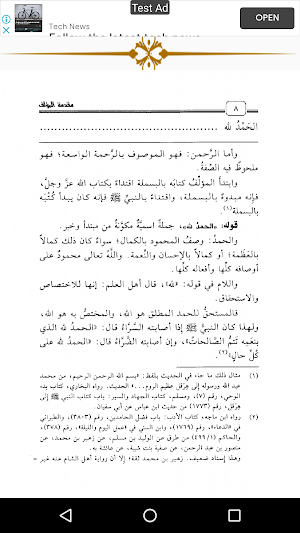 Test Ad
Tech News
OPEN
مقدمة المؤلف
٨
الحَمْدُ لله
وأما الرَّحمن: فهو الموصوف بالرَّحمة الواسعة؛ فهو
ملحوظٌ فيه الصِّفةُ.
وابتدأ المؤلِّفُ كتابَه بالبسملة اقتداءً بكتاب الله عزَّ وجلَّ،
فإنه مبدوءٌ بالبسملة، واقتداءً بالنبيِّ ﷺ فإنه كان يبدأ كُتُبَه
بالبسملة(١).
قوله: «الحمدُ لله»، جملةٌ اسميَّةٌ مكوَّنةٌ من مبتدأ وخبر.
والحمدُ: وصفُ المحمود بالكمال؛ سواءٌ كان ذلك كمالاً
بالعَظَمة؛ أو كمالاً بالإحسان والنِّعمة. واللَّهُ تعالى محمودٌ على
أوصافه كلِّها وأفعاله كلِّها.
واللام في قوله: «لله»، قال أهل العلم: إنها للاختصاص
والاستحقاق.
فالمستحقُّ للحمد المطلق هو الله، والمختصُّ به هو الله،
ولهذا كان النبيُّ ﷺ إذا أصابته السَّرَّاءُ قال: «الحمدُ لله الذي
بنعمِهِ تَتمُّ الصَّالحاتُ»، وإن أصابته الضَّرَّاءُ قال: «الحمدُ لله على
كلِّ حالٍ»(٢).
(١) مثال ذلك ما جاء في الحديث بلفظ: «بسم الله الرحمن الرحيم، من محمد
عبد الله ورسوله إلى هِرَقل عظيم الروم... » الحديث. رواه البخاري، كتاب بدء
الوحي، رقم (٧)، ومسلم، كتاب الجهاد والسير: باب كتاب النبي ﷺ إلى
هِرَقل، رقم (١٧٧٣) من حديث ابن عباس عن أبي سفيان.
(٢) رواه ابن ماجه، كتاب الأدب: باب فضل الحامدين، رقم (٣٨٠٣)، والطبراني
في «الدعاء»، رقم (١٧٦٩)، وابن السني في «عمل اليوم والليلة»، رقم (٣٧٨)،
والحاكم (٤٩٩/١) من طرق عن الوليد بن مسلم، عن زهير بن محمد، عن
منصور بن عبد الرحمن، عن صفية بنت شيبة، عن عائشة به.
وهذا إسناد ضعيف. زهير بن محمد ثقة؛ إلا أن رواية أهل الشام عنه غير =